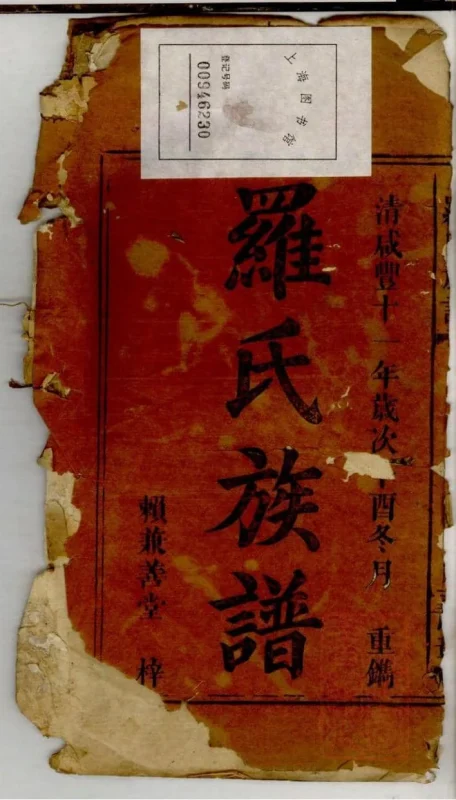 上海图书馆
登记号码
00946230
清咸豐十一年歲次辛酉冬月 重鐫
羅氏族譜
賴兼善堂 梓